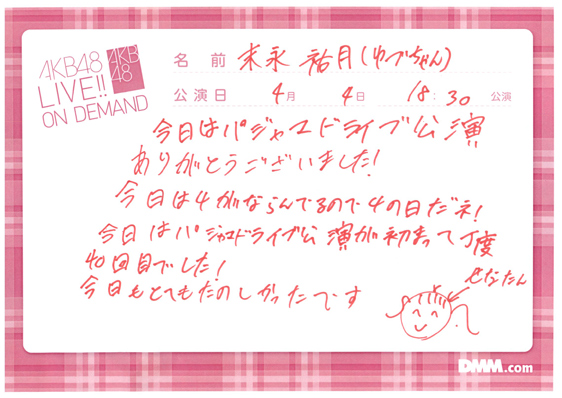 AKB48
LIVE!!
ON DEMAND
AKB
48
名 前 末永 祐月(ゆづちゃん)
公演日 4月 4日 18:30 公演
今日はパジャマドライブ公演
ありがとうございました!
今日は4がならんでるので4の日だネ!
今日はパジャマドライブ公演が初まって丁度
40回目でした!
今日もとてもたのしかったです
せなたん
DMM.com